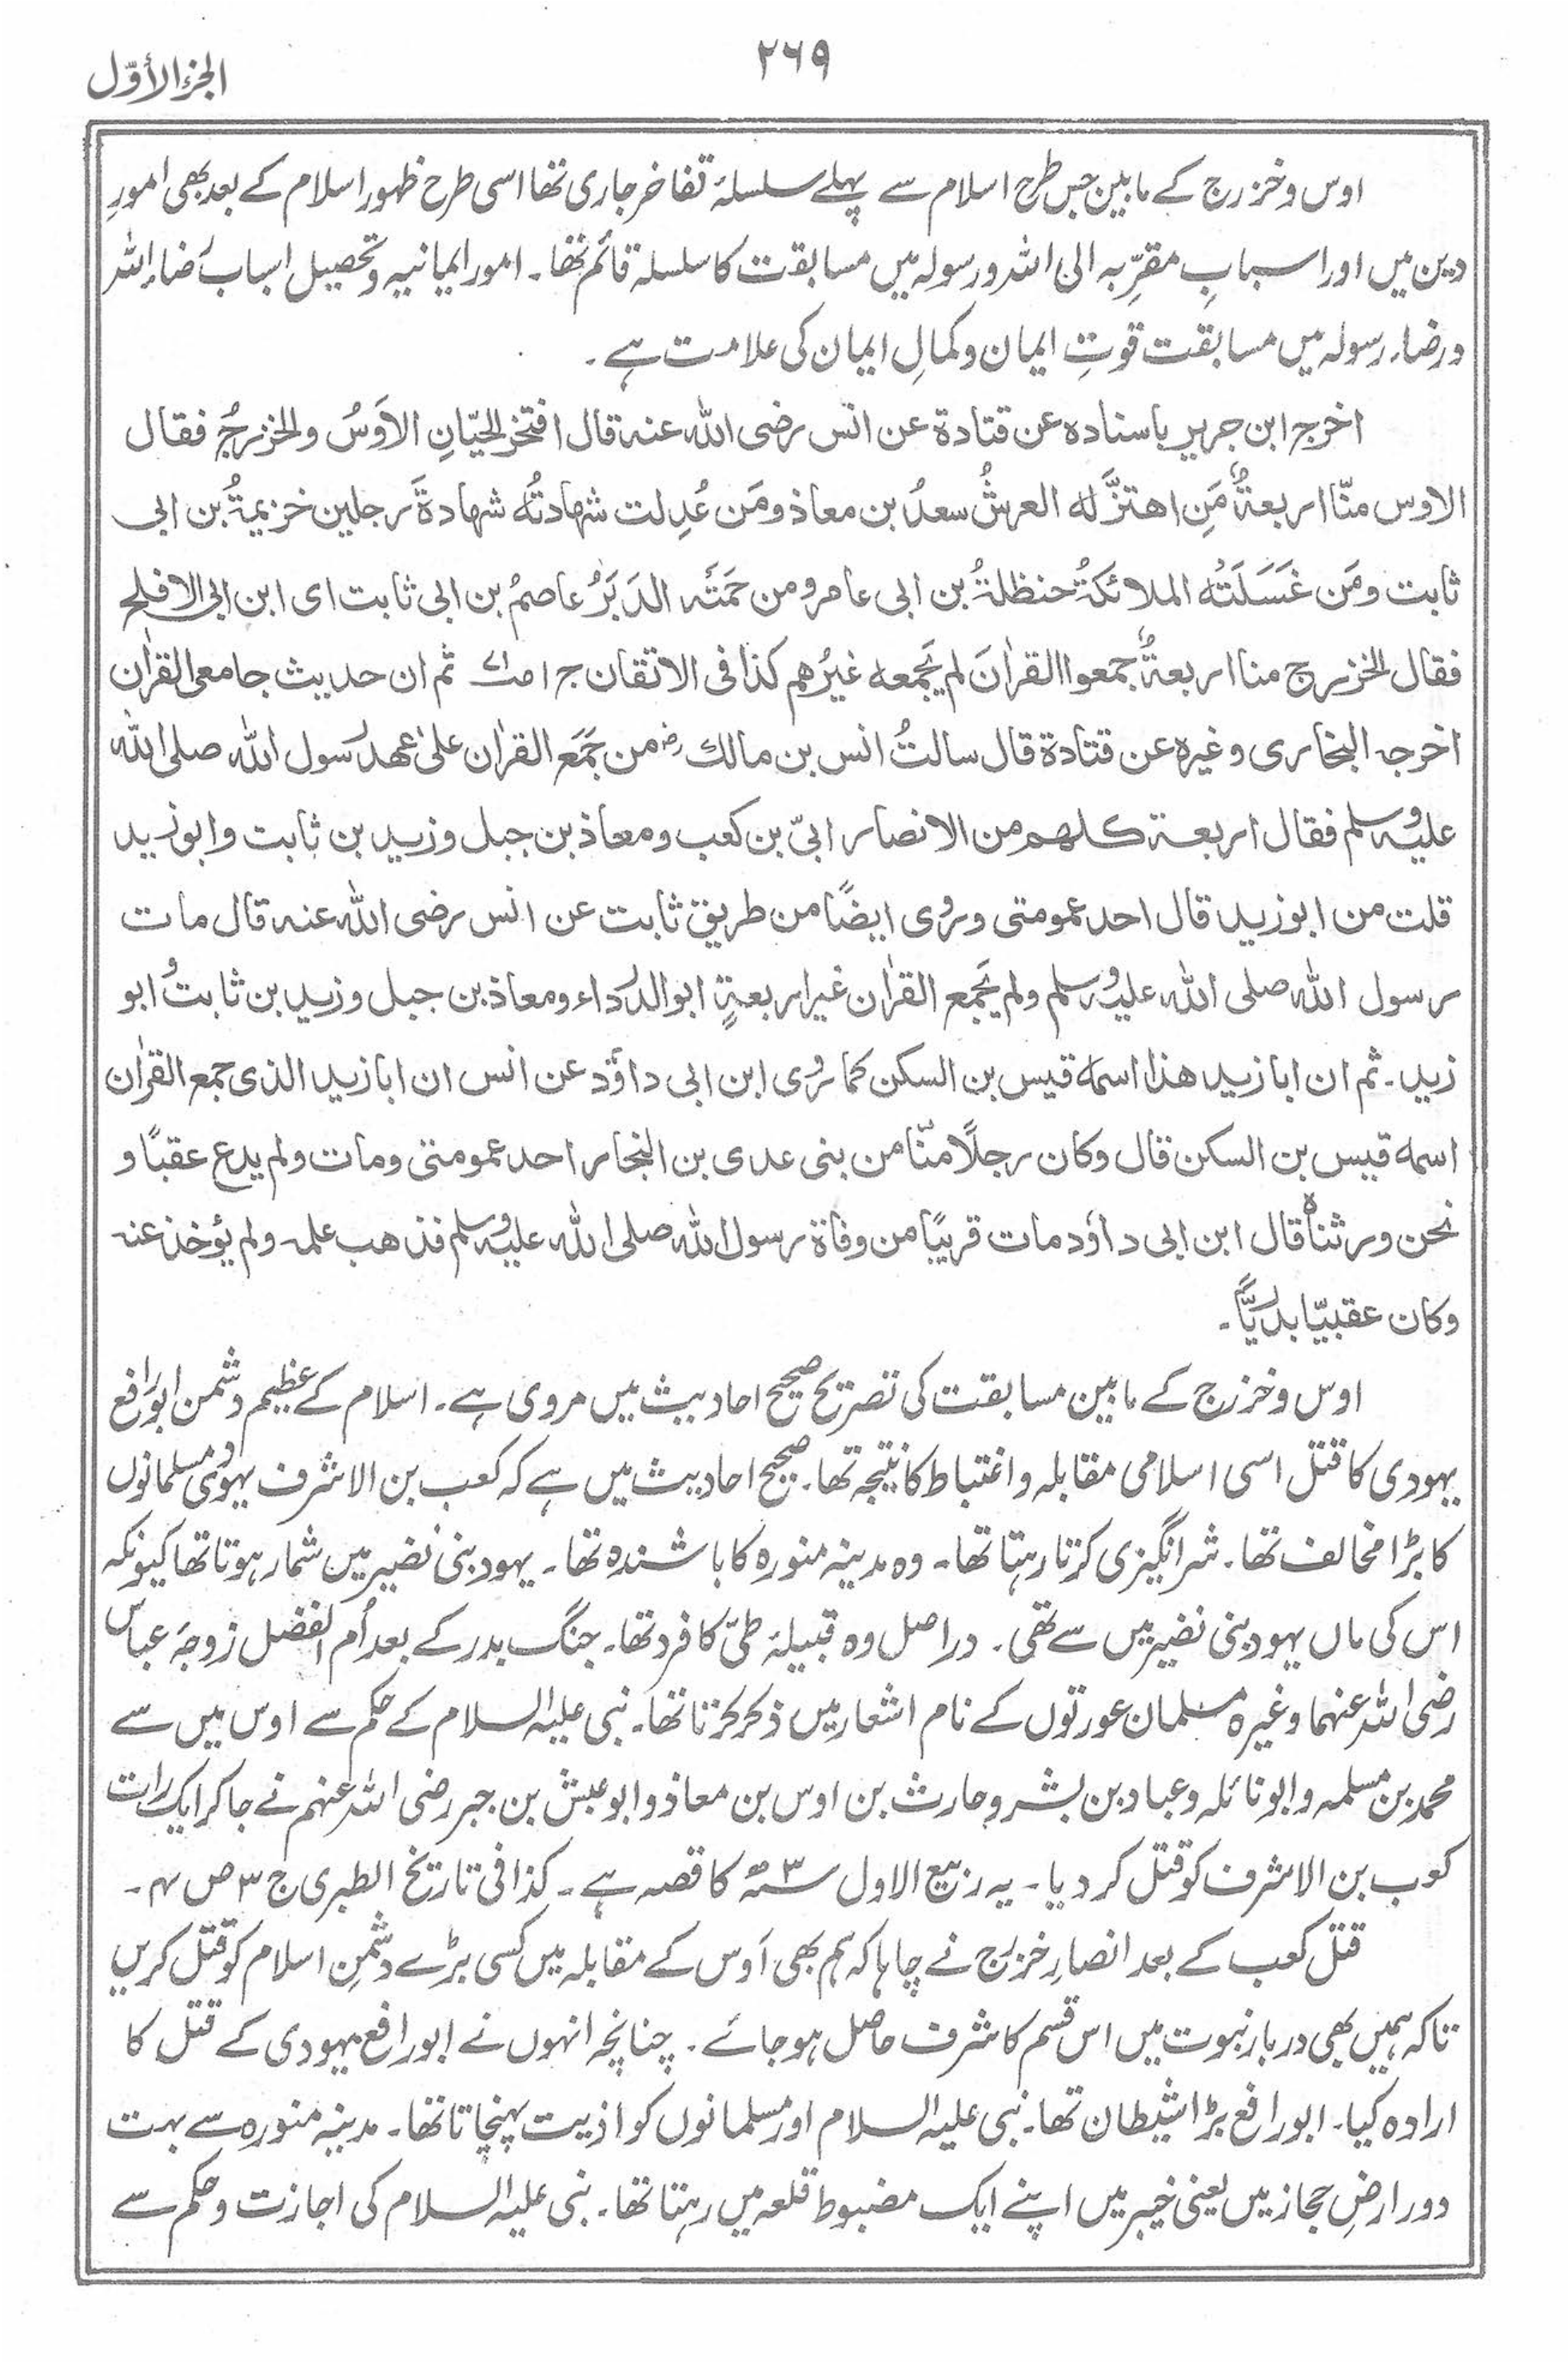 ٢٦٩
الجزء الأوّل
اوس وخزرج کے مابین جس طرح اسلام سے پہلے سلسلۂ تفاخر جاری تھا اسی طرح ظہور اسلام کے بعد بھی امورِ
دین میں اور اسبابِ مقرِّبہ الی اللہ ورسولہ میں مسابقت کا سلسلہ قائم تھا۔ امور ایمانیہ وتحصیل اسباب رضاء اللہ
ورضاء رسولہ میں مسابقت قوتِ ایمان وکمالِ ایمان کی علامت ہے۔
اخرج ابن جریر باسنادہ عن قتادة عن انس رضی اللہ عنہ قال افتخر الحیّانِ الاَوسُ والخزرجُ فقال
الاوس منّا اربعةٌ مَنِ اهتزَّ له العرشُ سعدُ بن معاذ ومَن عُدِلت شهادتُه شهادةَ رجلین خزیمةُ بن ابی
ثابت ومَن غَسَلَتْه الملائکةُ حنظلةُ بن ابی عامر ومن حَمَتْه الدَبَرُ عاصمُ بن ابی ثابت ای ابن ابی الافلح
فقال الخزرج منا اربعةٌ جمعوا القراٰنَ لم یَجمعه غیرُهم کذا فی الاتقان ج ۱ ثم ان حدیث جامعی القراٰن
اخرجہ البخاری وغیرہ عن قتادة قال سالتُ انس بن مالك رضہ من جَمَع القراٰن علیٰ عهد رسول اللہ صلی اللہ
علیہ وسلم فقال اربعة کلهم من الانصار ابیّ بن کعب ومعاذ بن جبل وزید بن ثابت وابو زید
قلت من ابو زید قال احد عمومتی ورُوی ایضًا من طریق ثابت عن انس رضی اللہ عنہ قال مات
رسول اللہ صلی اللہ علیہ وسلم ولم یَجمع القراٰن غیر اربعةٍ ابو الدرداء ومعاذ بن جبل وزید بن ثابت وابو
زید۔ ثم ان ابا زید هذا اسمه قیس بن السکن کما رُوی ابن ابی داؤد عن انس ان ابا زید الذی جمع القراٰن
اسمه قیس بن السکن قال وکان رجلًا منّا من بنی عدی بن النجار احد عمومتی ومات ولم یدع عقبًا و
نحن ورثناہ قال ابن ابی داؤد مات قریبًا من وفاة رسول اللہ صلی اللہ علیہ وسلم فذهب علمہ ولم یُؤخذ عنہ
وکان عقبیّا بدریًّا۔
اوس وخزرج کے مابین مسابقت کی تصریح صحیح احادیث میں مروی ہے۔ اسلام کے عظیم دشمن ابورافع
یہودی کا قتل اسی اسلامی مقابلہ واغتباط کا نتیجہ تھا۔ صحیح احادیث میں ہے کہ کعب بن الاشرف یہودی مسلمانوں
کا بڑا مخالف تھا۔ شرانگیزی کرتا رہتا تھا۔ وہ مدینہ منورہ کا باشندہ تھا۔ یہود بنی نضیر میں شمار ہوتا تھا کیونکہ
اس کی ماں یہود بنی نضیر میں سے تھی۔ دراصل وہ قبیلۂ طیّ کا فرد تھا۔ جنگ بدر کے بعد اُم الفضل زوجۂ عباس
رضی اللہ عنہما وغیرہ مسلمان عورتوں کے نام اشعار میں ذکر کرتا تھا۔ نبی علیہ السلام کے حکم سے اوس میں سے
محمد بن مسلمہ وابونائلہ وعباد بن بشر وحارث بن اوس بن معاذ وابوعبش بن جبر رضی اللہ عنہم نے جا کر ایک رات
کعب بن الاشرف کو قتل کر دیا۔ یہ ربیع الاول ۳ ھ کا قصہ ہے۔ کذا فی تاریخ الطبری ج ۳ ص ۴۔
قتل کعب کے بعد انصارِ خزرج نے چاہا کہ ہم بھی اَوس کے مقابلہ میں کسی بڑے دشمنِ اسلام کو قتل کریں
تاکہ ہمیں بھی دربار نبوت میں اس قسم کا شرف حاصل ہوجائے۔ چنانچہ انہوں نے ابورافع یہودی کے قتل کا
ارادہ کیا۔ ابورافع بڑا شیطان تھا۔ نبی علیہ السلام اور مسلمانوں کو اذیت پہنچاتا تھا۔ مدینہ منورہ سے بہت
دور ارضِ حجاز میں یعنی خیبر میں اپنے ایک مضبوط قلعہ میں رہتا تھا۔ نبی علیہ السلام کی اجازت وحکم سے